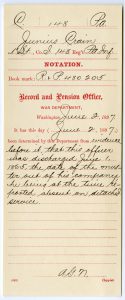 C 148 Pa.
Junius Crain
1 Lt. Co. I, 148 Reg't Pa. Inf.
NOTATION.
Book mark: R & P 480 205
Record and Pension Office,
WAR DEPARTMENT,
Washington, June 2, 1897.
It has this day (June 2, 1897)
been determined by this Department from evidence
before it, that this officer
was discharged June 1,
1865, the date of the mus-
ter out of his company
he being at the time re-
ported absent on detached
service.